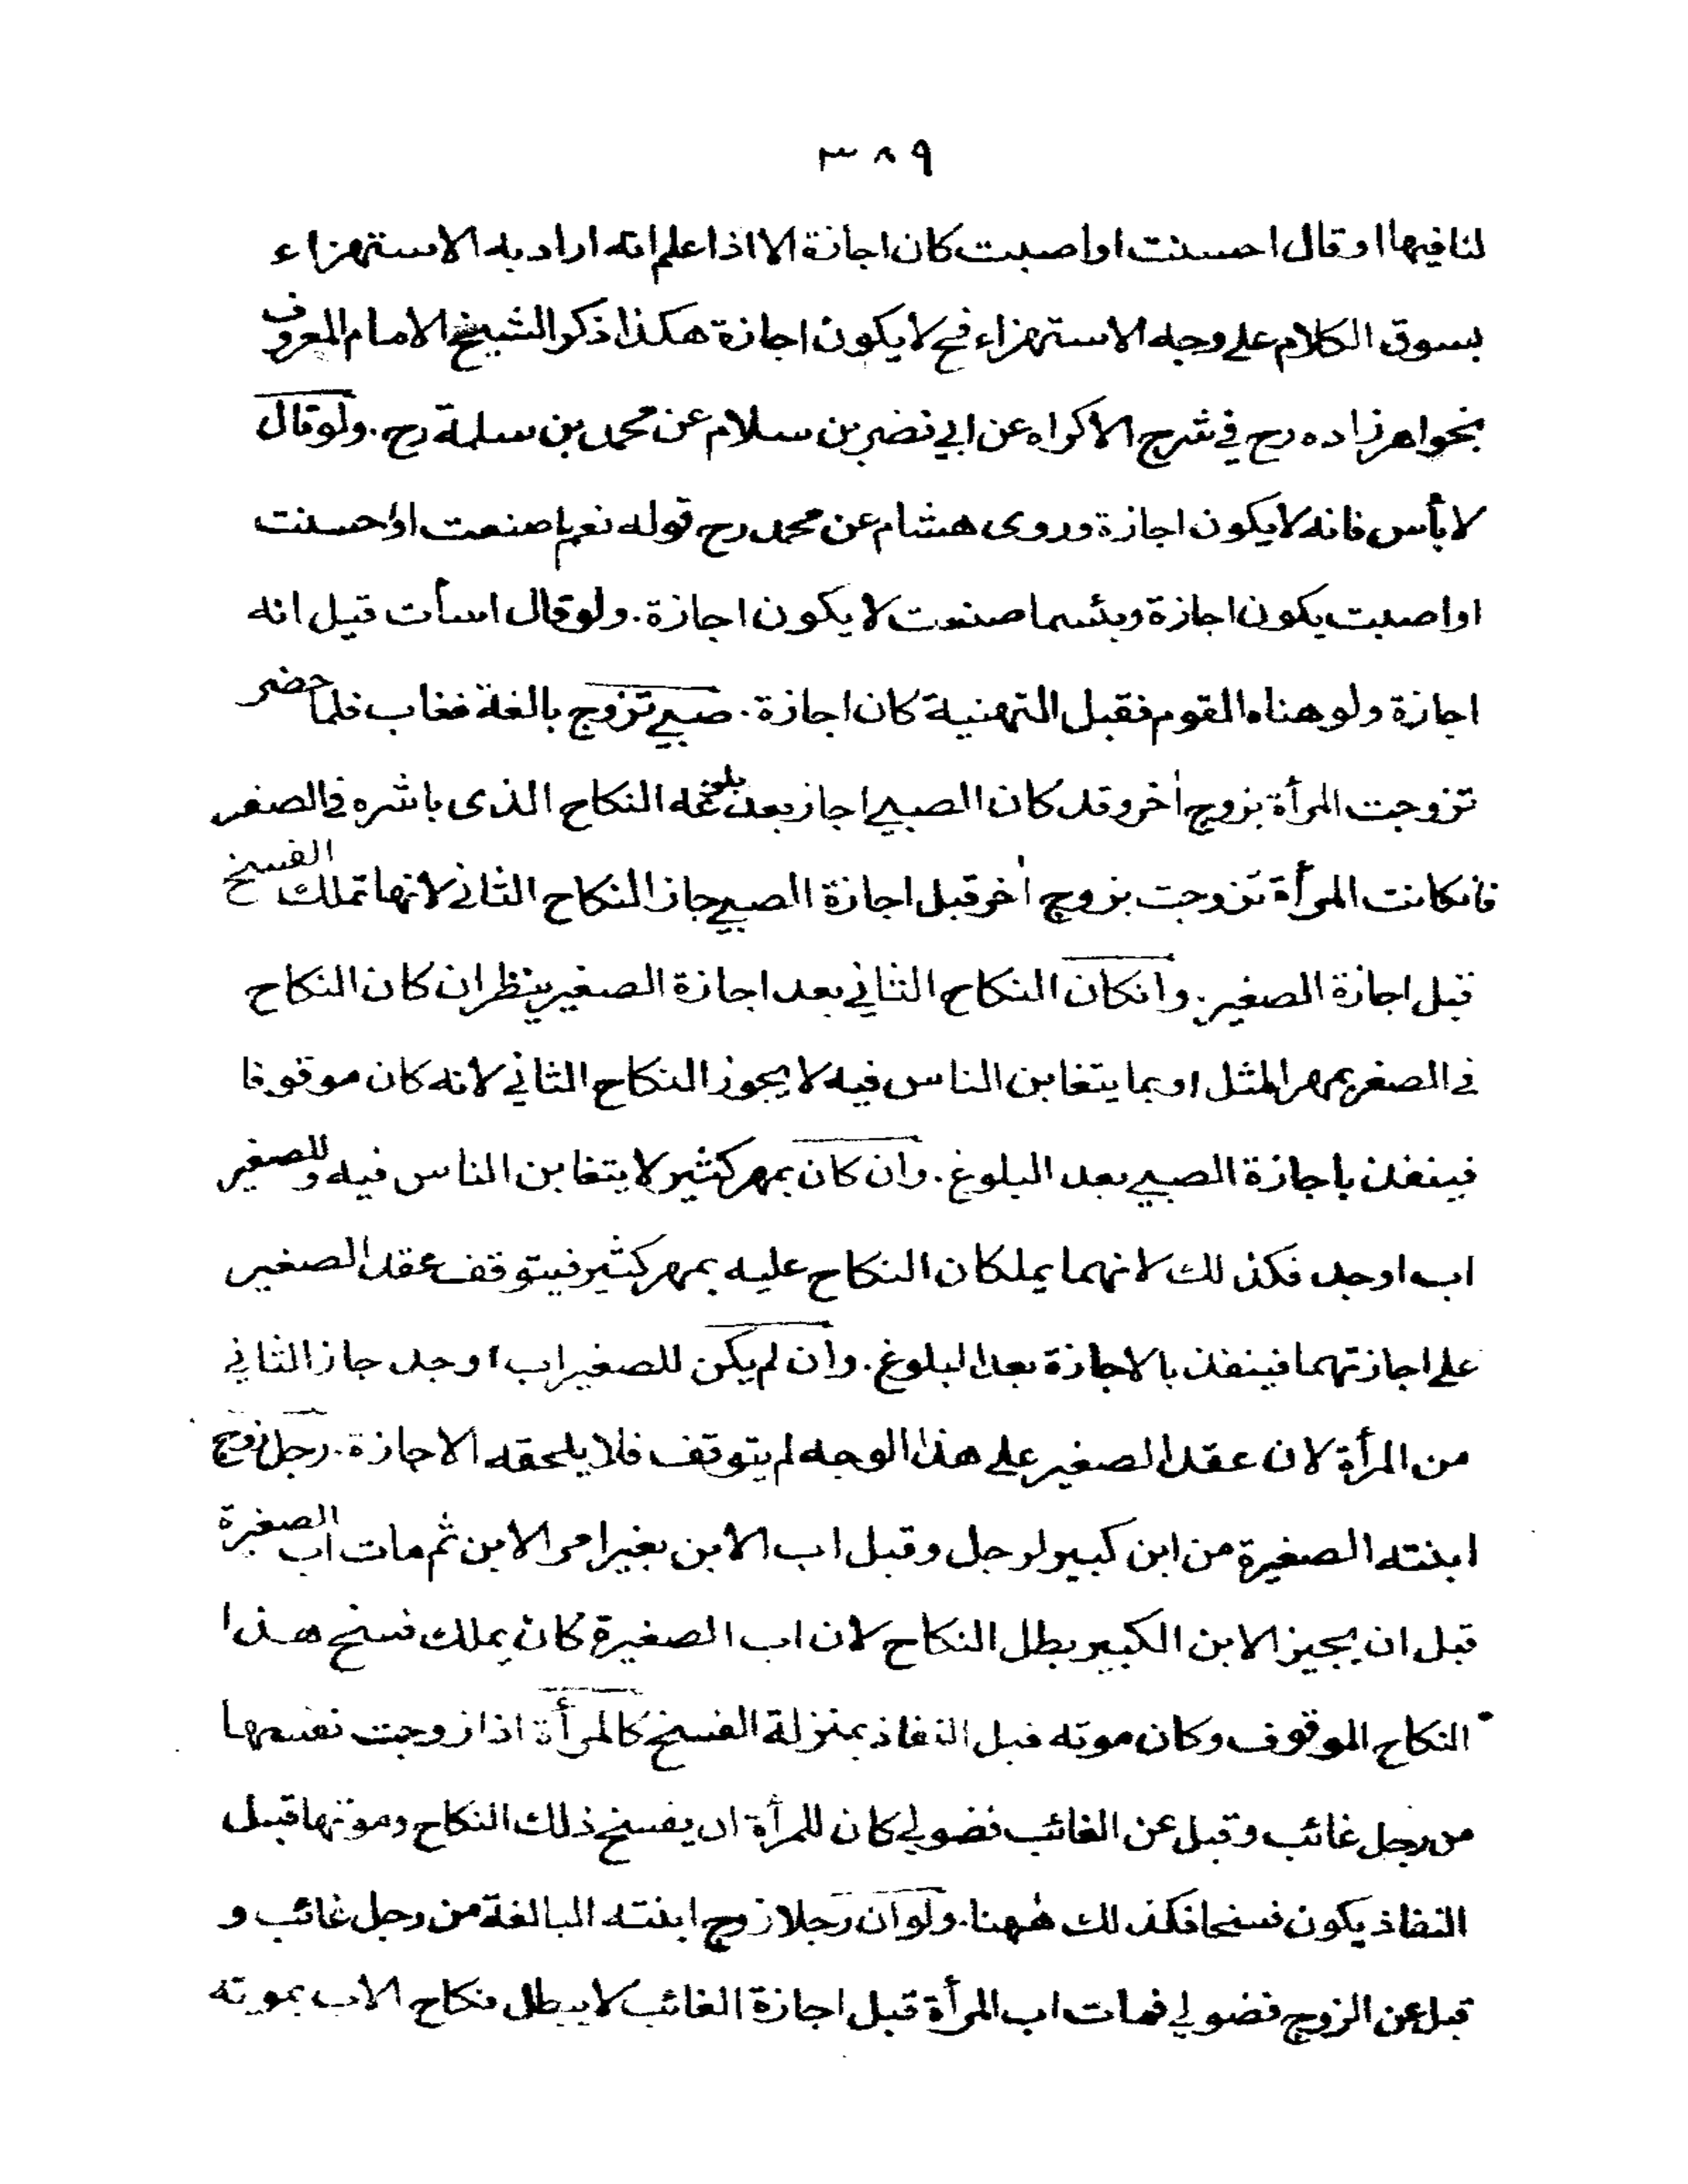 ٣٨٩
لنا فيها او قال احسنت او اصبت كان اجازة الا اذا علم انه اراد به الاستهزاء
بسوق الكلام على وجه الاستهزاء فح لا يكون اجازة هكذا ذكر الشيخ الامام المعروف
بخواهر زاده رح في شرح الاكراه عن ابي نضر بن سلام عن محمد بن سلمة رح. ولو قال
لا بأس فانه لا يكون اجازة وروى هشام عن محمد رح قوله نعم ما صنعت او احسنت
او اصبت يكون اجازة وبئسما صنعت لا يكون اجازة. ولو قال اسأت قيل انه
اجازة ولو هناه القوم فقبل التهنية كان اجازة. صبي تزوج بالغة فغاب فلما حضر
تزوجت المرأة بزوج اٰخر وقد كان الصبي اجاز بعد بلوغه النكاح الذى باشره في الصغر
فانكانت المرأة تزوجت بزوج اٰخر قبل اجازة الصبي جاز النكاح الثاني لانها تملك الفسخ
قبل اجازة الصغير. وانكان النكاح الثاني بعد اجازة الصغير ينظر ان كان النكاح
في الصغر بمهر المثل او بما يتغابن الناس فيه لا يجوز النكاح الثاني لانه كان موقوفا
فينفذ باجازة الصبي بعد البلوغ. وان كان بمهر كثير لا يتغابن الناس فيه وللصغير
اب او جد فكذلك لانهما يملكان النكاح عليه بمهر كثير فيتوقف عقد الصغير
على اجازتهما فينفذ بالاجازة بعد البلوغ. وان لم يكن للصغير اب او جد جاز الثاني
من المرأة لان عقد الصغير على هذا الوجه لم يتوقف فلا يلحقه الاجازة. رجل زوج
ابنته الصغيرة من ابن كبير لرجل وقبل اب الابن بغير امر الابن ثم مات اب الصغيرة
قبل ان يجيز الابن الكبير بطل النكاح لان اب الصغيرة كان يملك فسخ هذا
النكاح الموقوف وكان موته قبل النفاذ بمنزلة الفسخ كالمرأة اذا زوجت نفسها
من رجل غائب وقبل عن الغائب فضولي كان للمرأة ان يفسخ ذلك النكاح وموتها قبل
النفاذ يكون فسخا فكذلك هٰهنا. ولو ان رجلا زوج ابنته البالغة من رجل غائب و
قبل عن الزوج فضولي فمات اب المرأة قبل اجازة الغائب لا يبطل نكاح الاب بموته